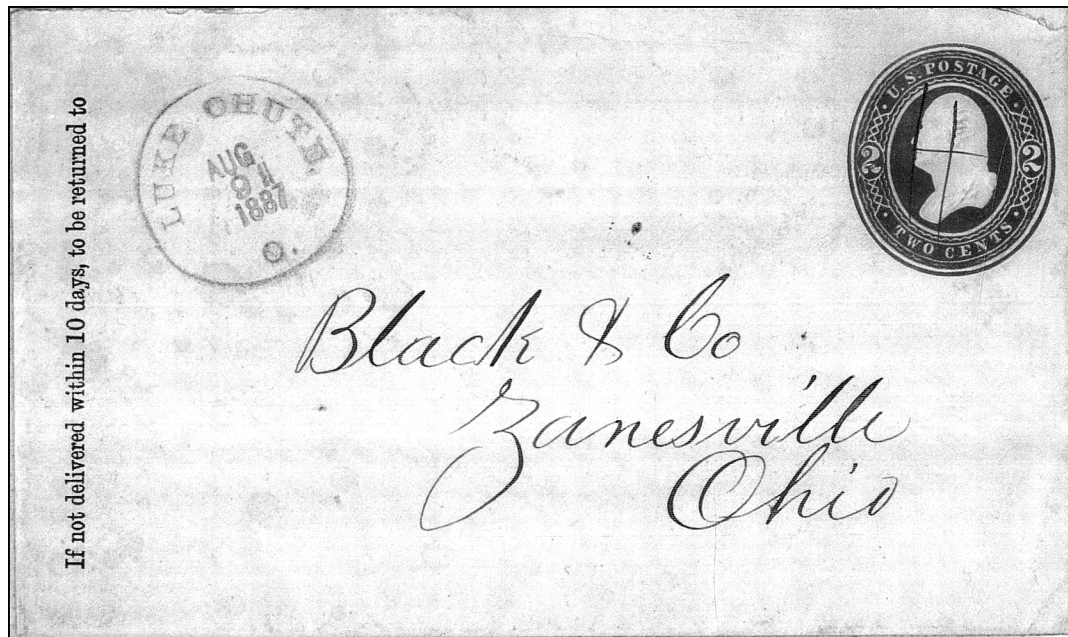 If not delivered within 10 days, to be returned to
LUKE CHUTE
AUG
1887
O.
U.S. POSTAGE
2 2
TWO CENTS
Black & Co
Zanesville
Ohio